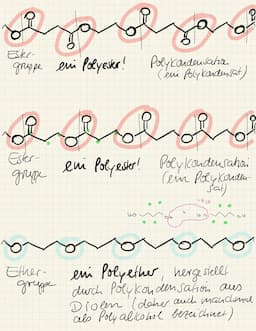 Ester-
gruppe
ein Polyester!
Polykondensation
(ein Polykondensat)
Ester-
gruppe
ein Polyester!
Polykondensation
(ein Polykonden-
sat)
Ether-
gruppe
ein Polyether, hergestellt
durch Polykondensation aus
Diolen (daher auch manchmal
als Polyalkohol bezeichnet)